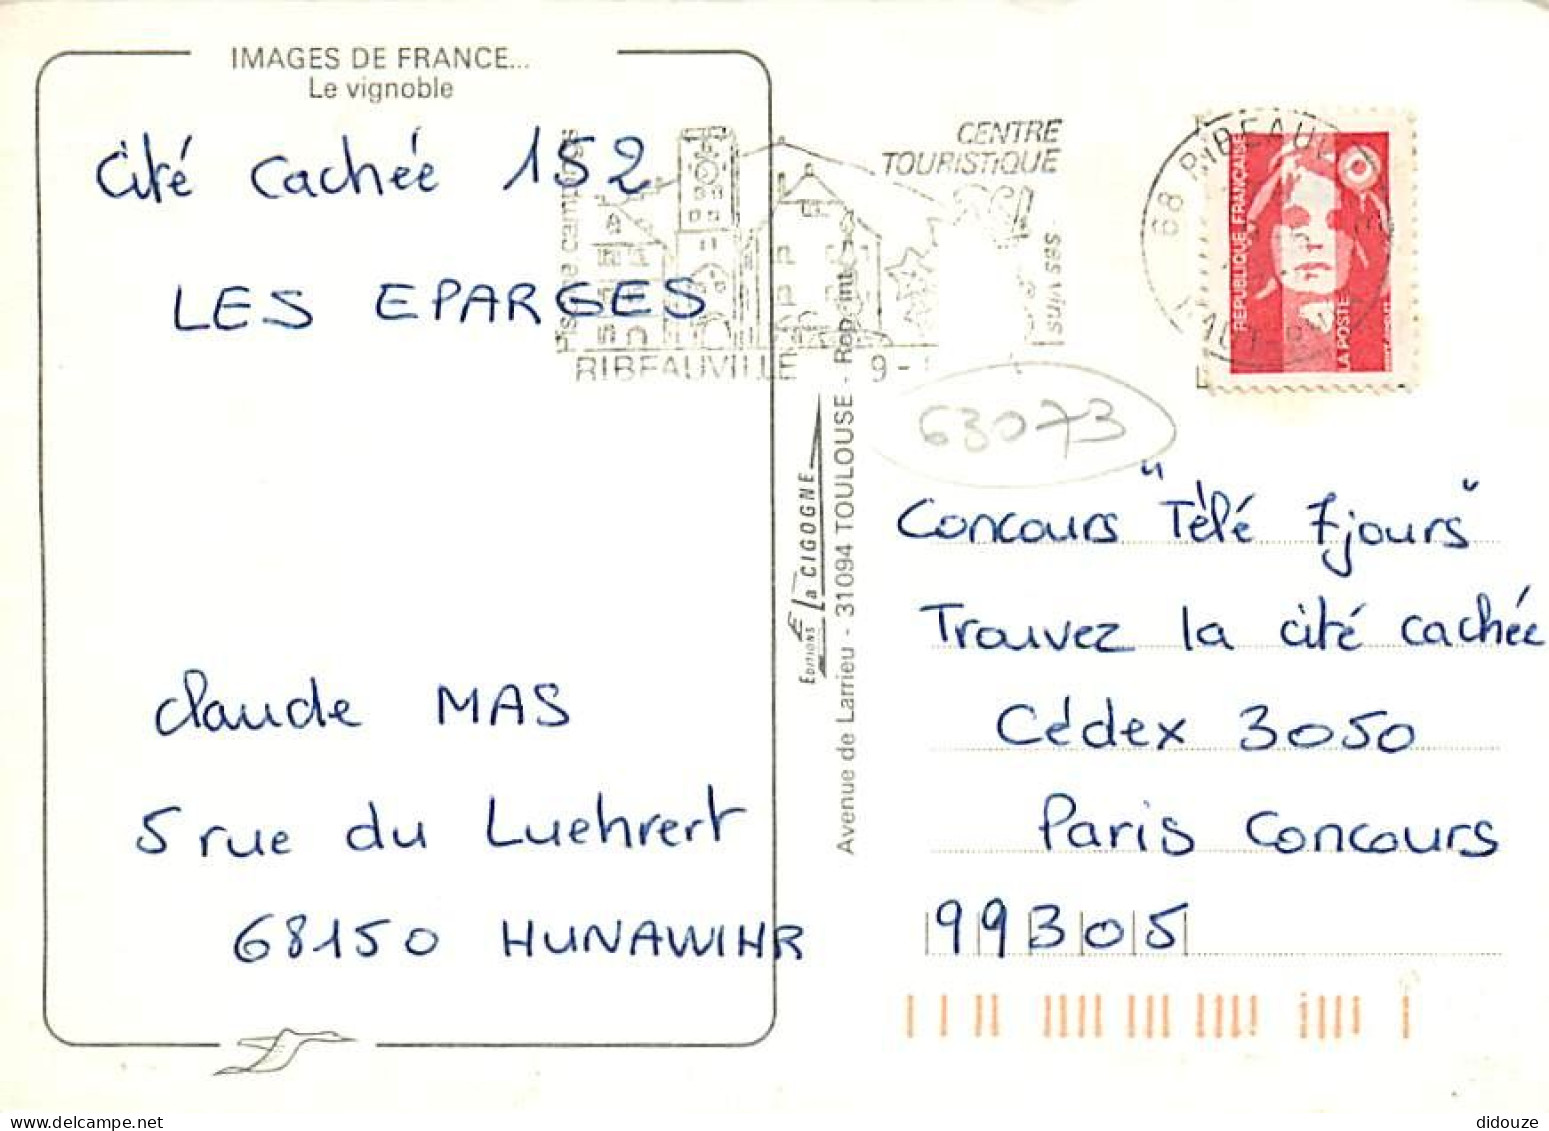 IMAGES DE FRANCE...
Le vignoble
Cité cachée 152
LES EPARGES
Claude MAS
5 rue du Luehrert
68150 HUNAWIHR
CENTRE
TOURISTIQUE
ses vins
RIBEAUVILLE 9-
EDITIONS La CIGOGNE
Avenue de Larrieu - 31094 TOULOUSE - Rep. int.
68 RIBEAUVILLE
REPUBLIQUE FRANÇAISE
LA POSTE
63073
Concours "Télé 7jours"
Trouvez la cité cachée
Cédex 3050
Paris Concours
99305
didouze